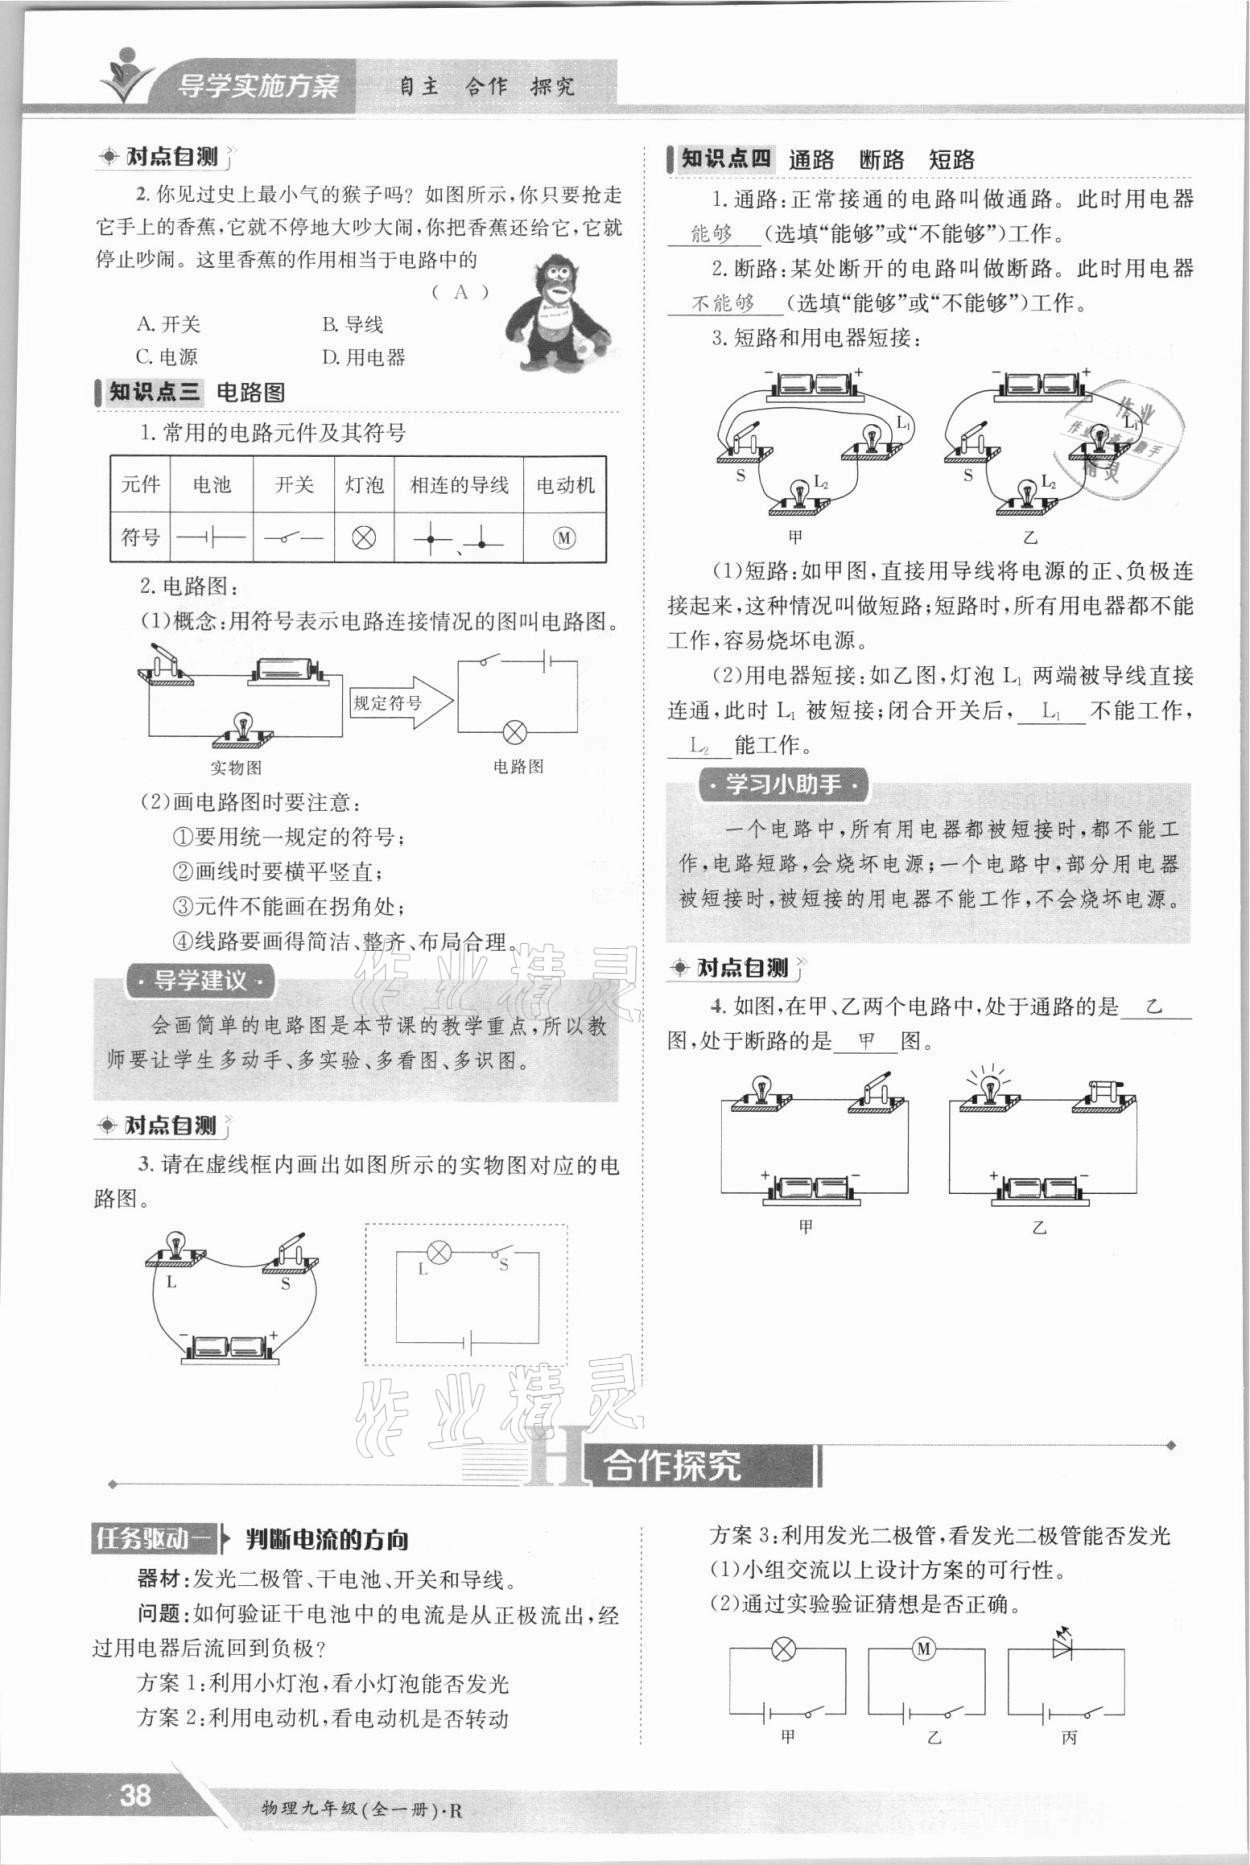 导学实施方案
自主 合作 探究
对点自测
2. 你见过史上最小气的猴子吗？如图所示,你只要抢走
它手上的香蕉,它就不停地大吵大闹,你把香蕉还给它,它就
停止吵闹。这里香蕉的作用相当于电路中的
( A )
A. 开关 B. 导线
C. 电源 D. 用电器
知识点三 电路图
1. 常用的电路元件及其符号
元件 电池 开关 灯泡 相连的导线 电动机
符号 、 M
2. 电路图:
(1)概念:用符号表示电路连接情况的图叫电路图。
规定符号
实物图 电路图
(2)画电路图时要注意:
①要用统一规定的符号;
②画线时要横平竖直;
③元件不能画在拐角处;
④线路要画得简洁、整齐、布局合理。
·导学建议·
会画简单的电路图是本节课的教学重点,所以教
师要让学生多动手、多实验、多看图、多识图。
对点自测
3. 请在虚线框内画出如图所示的实物图对应的电
路图。
L S
- +
L S
知识点四 通路 断路 短路
1. 通路:正常接通的电路叫做通路。此时用电器
能够 (选填“能够”或“不能够”)工作。
2. 断路:某处断开的电路叫做断路。此时用电器
不能够 (选填“能够”或“不能够”)工作。
3. 短路和用电器短接:
- + - +
L₁ L₁
S L₂ S L₂
甲 乙
(1)短路:如甲图,直接用导线将电源的正、负极连
接起来,这种情况叫做短路;短路时,所有用电器都不能
工作,容易烧坏电源。
(2)用电器短接:如乙图,灯泡 L₁ 两端被导线直接
连通,此时 L₁ 被短接;闭合开关后, L₁ 不能工作,
L₂ 能工作。
·学习小助手·
一个电路中,所有用电器都被短接时,都不能工
作,电路短路,会烧坏电源;一个电路中,部分用电器
被短接时,被短接的用电器不能工作,不会烧坏电源。
对点自测
4. 如图,在甲、乙两个电路中,处于通路的是 乙
图,处于断路的是 甲 图。
+ - + -
甲 乙
作业精灵
作业精灵
H 合作探究
任务驱动一 判断电流的方向
器材:发光二极管、干电池、开关和导线。
问题:如何验证干电池中的电流是从正极流出,经
过用电器后流回到负极?
方案 1:利用小灯泡,看小灯泡能否发光
方案 2:利用电动机,看电动机是否转动
方案 3:利用发光二极管,看发光二极管能否发光
(1)小组交流以上设计方案的可行性。
(2)通过实验验证猜想是否正确。
M
甲 乙 丙
38 物理九年级(全一册)·R